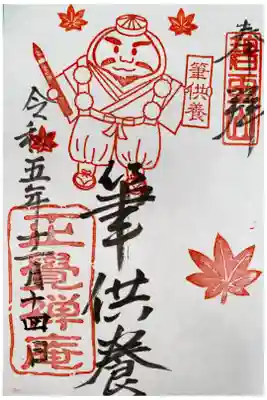 奉拜
筆供養
筆供養
令和五年十一月十四日
正覺禪庵